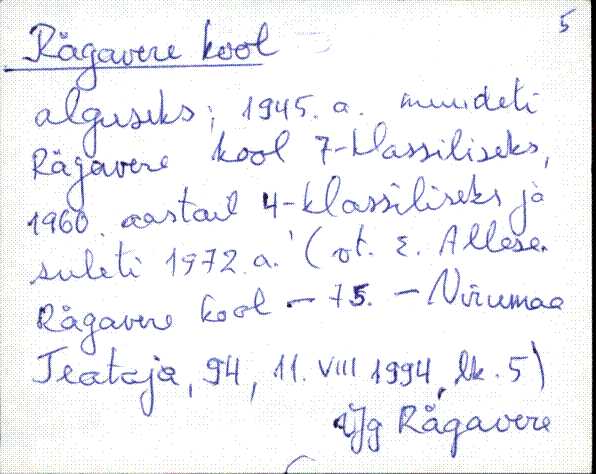 5
Rägavere kool
alguseks; 1945. a. muudeti
Rägavere kool 7-klassiliseks,
1960. aastail 4-klassiliseks ja
suleti 1972. a. (vt. E. Allese.
Rägavere kool – 75. – Virumaa
Teataja, 94, 11. VIII 1994, lk. 5)
Rägavere